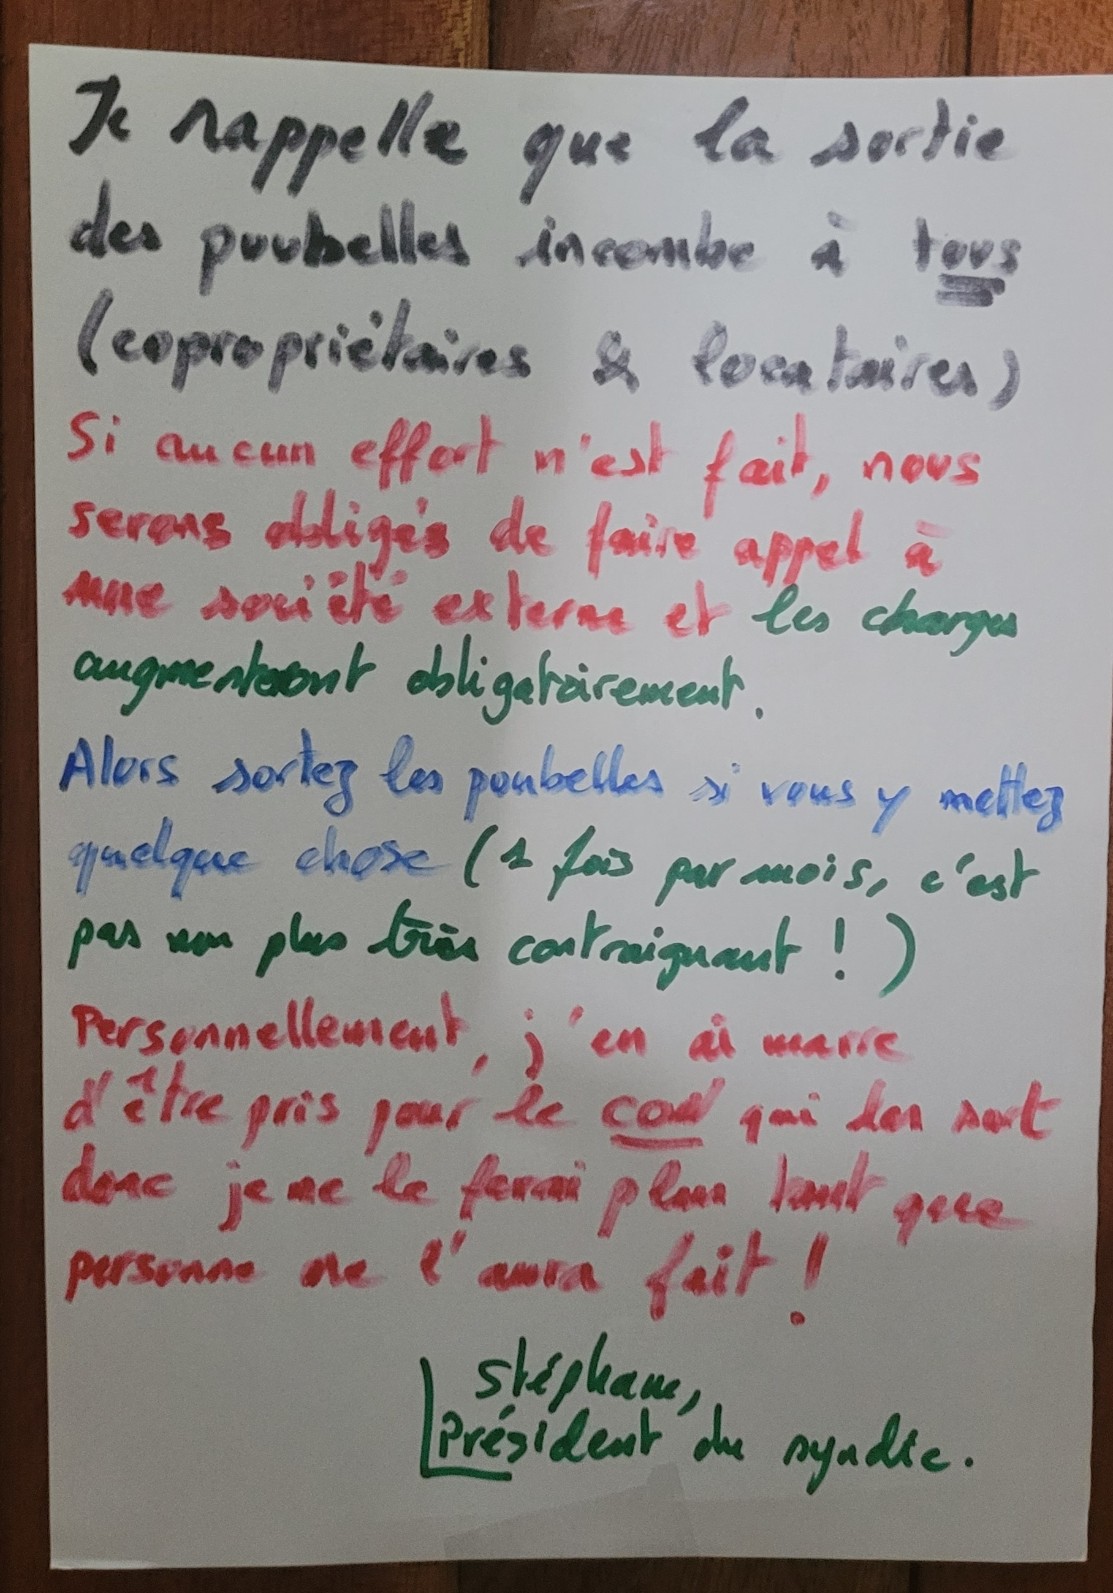 Je rappelle que la sortie
des poubelles incombe à tous
(copropriétaires & locataires)
Si aucun effort n'est fait, nous
serons obligés de faire appel à
une société externe et les charges
augmenteront obligatoirement.
Alors sortez les poubelles si vous y mettez
quelque chose (1 fois par mois, c'est
pas non plus très contraignant !)
Personnellement, j'en ai marre
d'être pris pour le con qui les sort
donc je ne le ferai plus tant que
personne ne l'aura fait !
Stéphane,
Président du syndic.